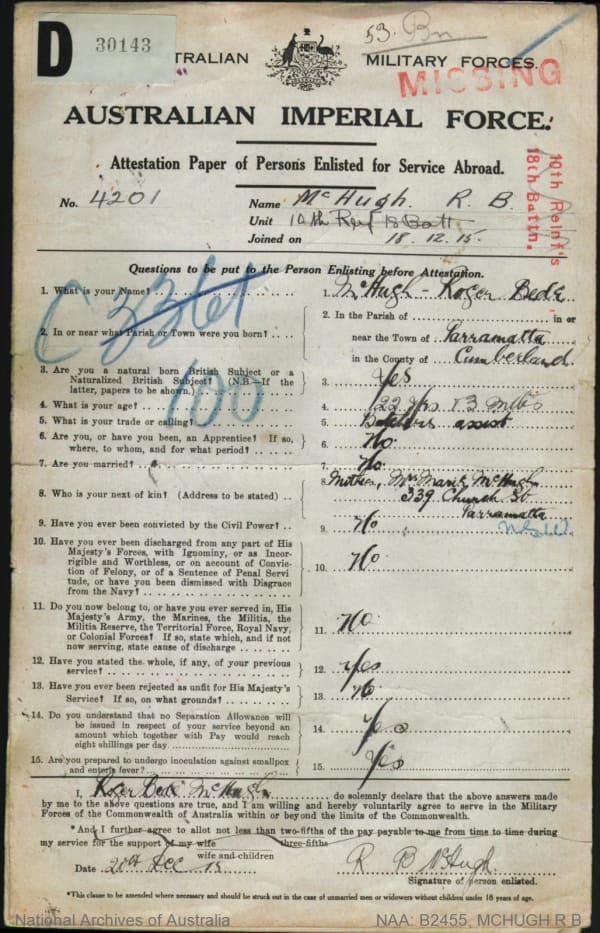 D 30143
53. Bn
TRALIAN MILITARY FORCES.
MISSING
AUSTRALIAN IMPERIAL FORCE.
Attestation Paper of Persons Enlisted for Service Abroad.
10th Reinf's
18th Battn.
No. 4201 Name McHugh. R. B.
Unit 10th Reif 18 Batt
Joined on 18.12.15.
Questions to be put to the Person Enlisting before Attestation.
C 3361
100
1. What is your Name? 1. McHugh - Roger Bede
2. In or near what Parish or Town were you born? 2. In the Parish of in or
near the Town of Parramatta
in the County of Cumberland
3. Are you a natural born British Subject or a
Naturalized British Subject? (N.B.—If the
latter, papers to be shown.) 3. Yes
4. What is your age? 4. 22 yrs 3 mths
5. What is your trade or calling? 5. assist
6. Are you, or have you been, an Apprentice? If so,
where, to whom, and for what period? 6. No.
7. Are you married? 7. No.
8. Who is your next of kin? (Address to be stated) 8. Mother, Mrs Marie McHugh
339 Church St
Parramatta
N.S.W.
9. Have you ever been convicted by the Civil Power? 9. No
10. Have you ever been discharged from any part of His
Majesty's Forces, with Ignominy, or as Incor-
rigible and Worthless, or on account of Convic-
tion of Felony, or of a Sentence of Penal Servi
tude, or have you been dismissed with Disgrace
from the Navy? 10. No
11. Do you now belong to, or have you ever served in, His
Majesty's Army, the Marines, the Militia, the
Militia Reserve, the Territorial Force, Royal Navy,
or Colonial Forces? If so, state which, and if not
now serving, state cause of discharge 11. No
12. Have you stated the whole, if any, of your previous
service? 12. Yes
13. Have you ever been rejected as unfit for His Majesty's
Service? If so, on what grounds? 13. No.
14. Do you understand that no Separation Allowance will
be issued in respect of your service beyond an
amount which together with Pay would reach
eight shillings per day 14. Yes
15. Are you prepared to undergo inoculation against smallpox
and enteric fever? 15. Yes
I, Roger Bede McHugh do solemnly declare that the above answers made
by me to the above questions are true, and I am willing and hereby voluntarily agree to serve in the Military
Forces of the Commonwealth of Australia within or beyond the limits of the Commonwealth.
*And I further agree to allot not less than two-fifths of the pay payable to me from time to time during
three-fifths
my service for the support of my wife
wife and children
Date 20th Dec 15 R B McHugh
Signature of person enlisted.
*This clause to be amended where necessary and should be struck out in the case of unmarried men or widowers without children under 16 years of age.
National Archives of Australia NAA: B2455, MCHUGH R B